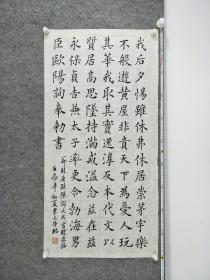 我后夕惕雖休弗休居崇茅宇樂
不般遊黃屋非貴天下為憂人玩
其華我取其實還淳反本代文以
質居高思墜持滿戒溢念茲在茲
永保貞吉兼太子率更令勃海男
臣歐陽詢奉勅書
唐歐陽詢九成宮醴泉銘